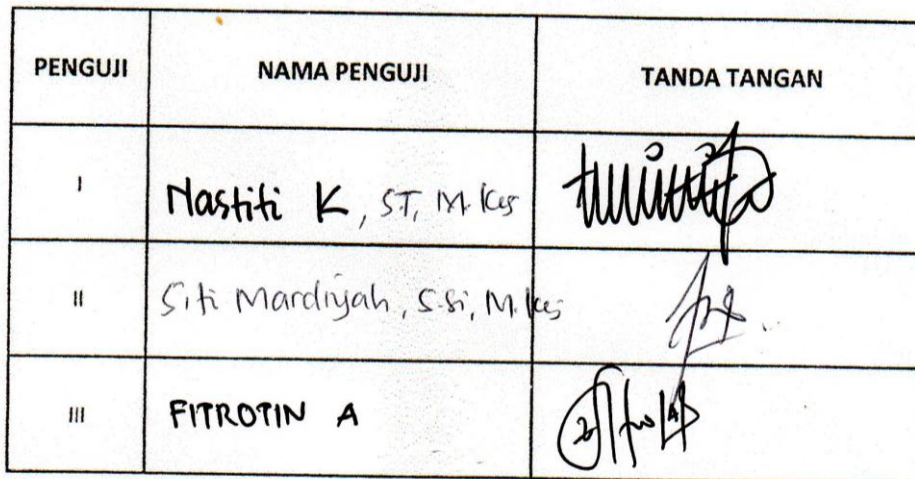 PENGUJI NAMA PENGUJI TANDA TANGAN
I Nastiti K, ST, M.Kes
II Siti Mardiyah, S.Si, M.Kes
III FITROTIN A